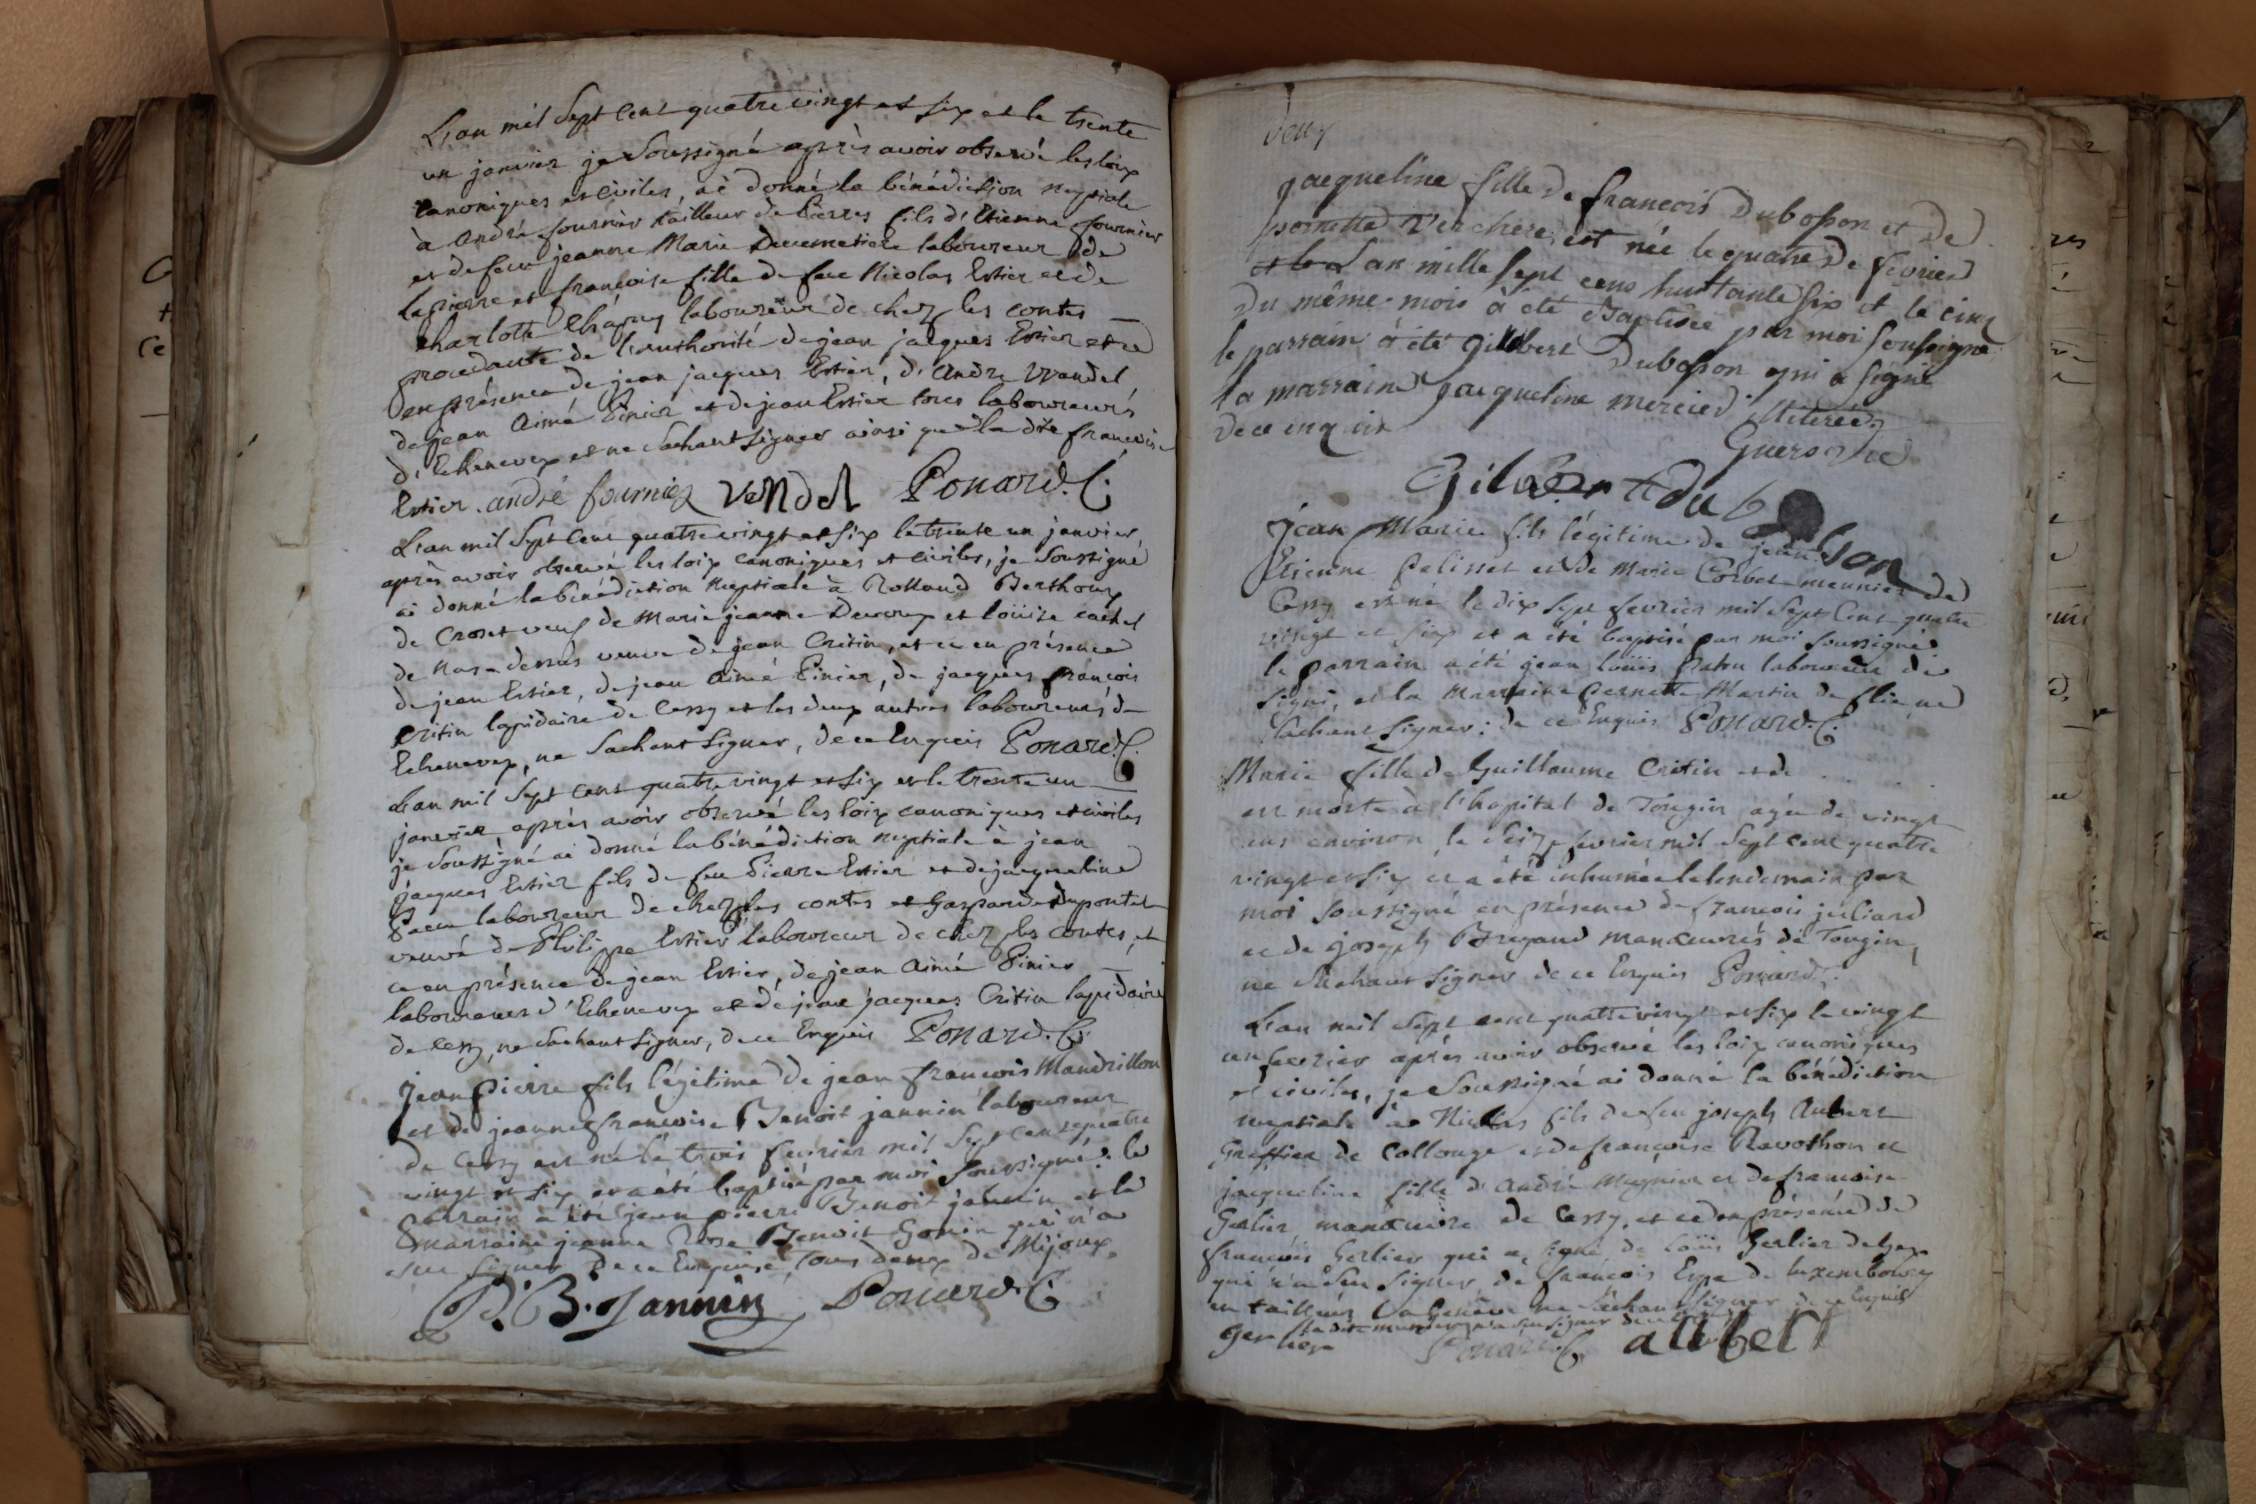 L'an mil Sept Cent quatre vingt et six et le trente
un janvier je Soussigné après avoir observé les loix
canoniques et civiles, ai donné la bénédiction nuptiale
à andré fournier tailleur de Pierres fils d'Etienne fournier
et de feue jeanne Marie laboureur de
la pierre et françoise fille de feu Nicolas Estier et de
charlotte laboureur de chez les contes
procedante de l'authorité de jean jacques Estier et ce
en présence de jean jacques Estier, d'andre Vandel
de jean Aimé Pinier et de jean Estier tous laboureurs
d'Echenevex et ne Sachant signer ainsi que la dite francoise
Estier. andré fournier vendel Ponard. C.
L'an mil Sept Cent quatre vingt et six le trente un janvier,
après avoir observé les loix canoniques et civiles, je Soussigné
ai donné la bénédiction nuptiale à Rolland Berthoux
de Crozet veuf de Marie jeanne Ducroux et loüise
de veuve de jean Critin, et ce en présence
de jean Estier, de jean Aimé Pinier, de jacques François
Critin lapidaire de Cessy et les deux autres laboureurs de
Echenevex, ne Sachant Signer, de ce Enquis Ponard. C.
L'an mil Sept Cent quatre vingt et six et le trente un
janvier, après avoir observé les loix canoniques et civiles
je Soussigné ai donné la bénédiction nuptiale à jean
jacques Estier fils de feu Pierre Estier et de jacqueline
laboureur de chez les contes et Gasparde Dupontet
veuve de Philippe Estier laboureur de chez les Contes, et
ce en présence de jean Estier, de jean Aimé Pinier
laboureurs d'Echenevex et de jean jacques Critin lapidaire
de Cessy, ne Sachant Signer, de ce Enquis Ponard. C.
Jean pierre fils légitime de jean francois Mandrillon
et de jeanne francoise Benoit jannin laboureur
de Cessy est né le trois fevrier mil Sept Cent quatre
vingt et six et a été baptisé par moi Soussigné: le
Parrain a été jean pierre Benoit jannin et la
marraine jeanne Rose Benoit Gonin qui n'a
sçu Signer de ce Enquise, tous deux de Mijoux.
P. B. Jannin Ponard. C.
deux
jacqueline fille de francois Dubosson et de
pernette Verchere est née le quatre de fevrier
L'an mille sept cens huittante six et le cinq
du même mois à été Baptisée par moi soussigné
le parrain à été gilbert Dubosson qui a signé
la marraine jacqueline mercier illiterée
de ce enquise
Gilbert du bosson
jean Marie fils légitime de jean
Etienne Pelisset et de Marie Corbet meunier de
Cessy est né le dix sept fevrier mil Sept Cent quatre
vingt et six et a été baptisé par moi Soussigné
le parrain a été jean loüis laboureur de
signi, et la Marraine Pernette Martin de flie, ne
Sachant signer: de ce Enquis Ponard. C.
Marie fille de Guillaume Critin et de ....
est morte à l'hopital de Tougin agée de vingt
ans environ, le seize fevrier mil Sept Cent quatre
vingt et six et a été inhumée le lendemain par
moi Soussigné en présence de francois julliard
et de joseph Brigand manœuvres de Tougin,
ne Sachant signer de ce Enquis Ponard. C.
L'an mil Sept cent quatre vingt et six le vingt
un fevrier après avoir observé les loix canoniques
et civiles, je Soussigné ai donné la bénédiction
nuptiale à Nicolas fils de feu joseph Aubert
Greffier de Collonge et de francoise Ravothon et
jacqueline fille d'andré Meynier et de francoise
Gerlier manœuvre de Cessy, et ce en présence de
francois Gerlier qui a signé, de Loüis Gerlier de Gex
qui n'a sçu signer, de francois de luxembourg
en tailleur ne Sachant signer de ce Enquis
Gerlier Ponard. C. aubert